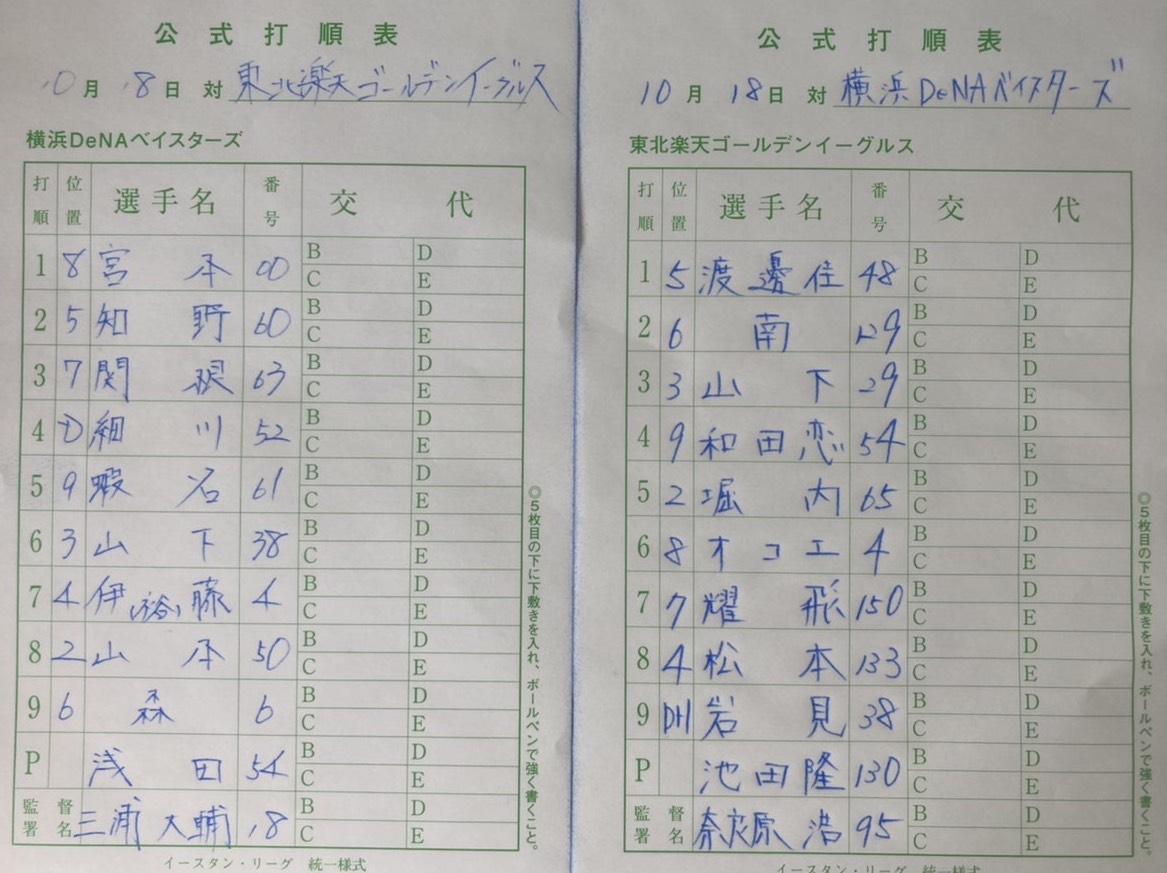 公式打順表
10月18日 対 東北楽天ゴールデンイーグルス
横浜DeNAベイスターズ
打順 位置 選手名 番号 交代
1 8 宮本 00 B D C E
2 5 知野 60 B D C E
3 7 関根 63 B D C E
4 D 細川 52 B D C E
5 9 蝦名 61 B D C E
6 3 山下 38 B D C E
7 4 伊藤(裕) 4 B D C E
8 2 山本 50 B D C E
9 6 森 6 B D C E
P 浅田 54 B D C E
監督署名 三浦大輔 18 B D C E
◎5枚目の下に下敷きを入れ、ボールペンで強く書くこと。
イースタン・リーグ 統一様式
公式打順表
10月18日 対 横浜DeNAベイスターズ
東北楽天ゴールデンイーグルス
打順 位置 選手名 番号 交代
1 5 渡邊佳 48 B D C E
2 6 南 129 B D C E
3 3 山下 29 B D C E
4 9 和田恋 54 B D C E
5 2 堀内 65 B D C E
6 8 オコエ 4 B D C E
7 7 耀飛 150 B D C E
8 4 松本 133 B D C E
9 DH 岩見 38 B D C E
P 池田隆 130 B D C E
監督署名 奈良原浩 95 B D C E
◎5枚目の下に下敷きを入れ、ボールペンで強く書くこと。
イースタン・リーグ 統一様式